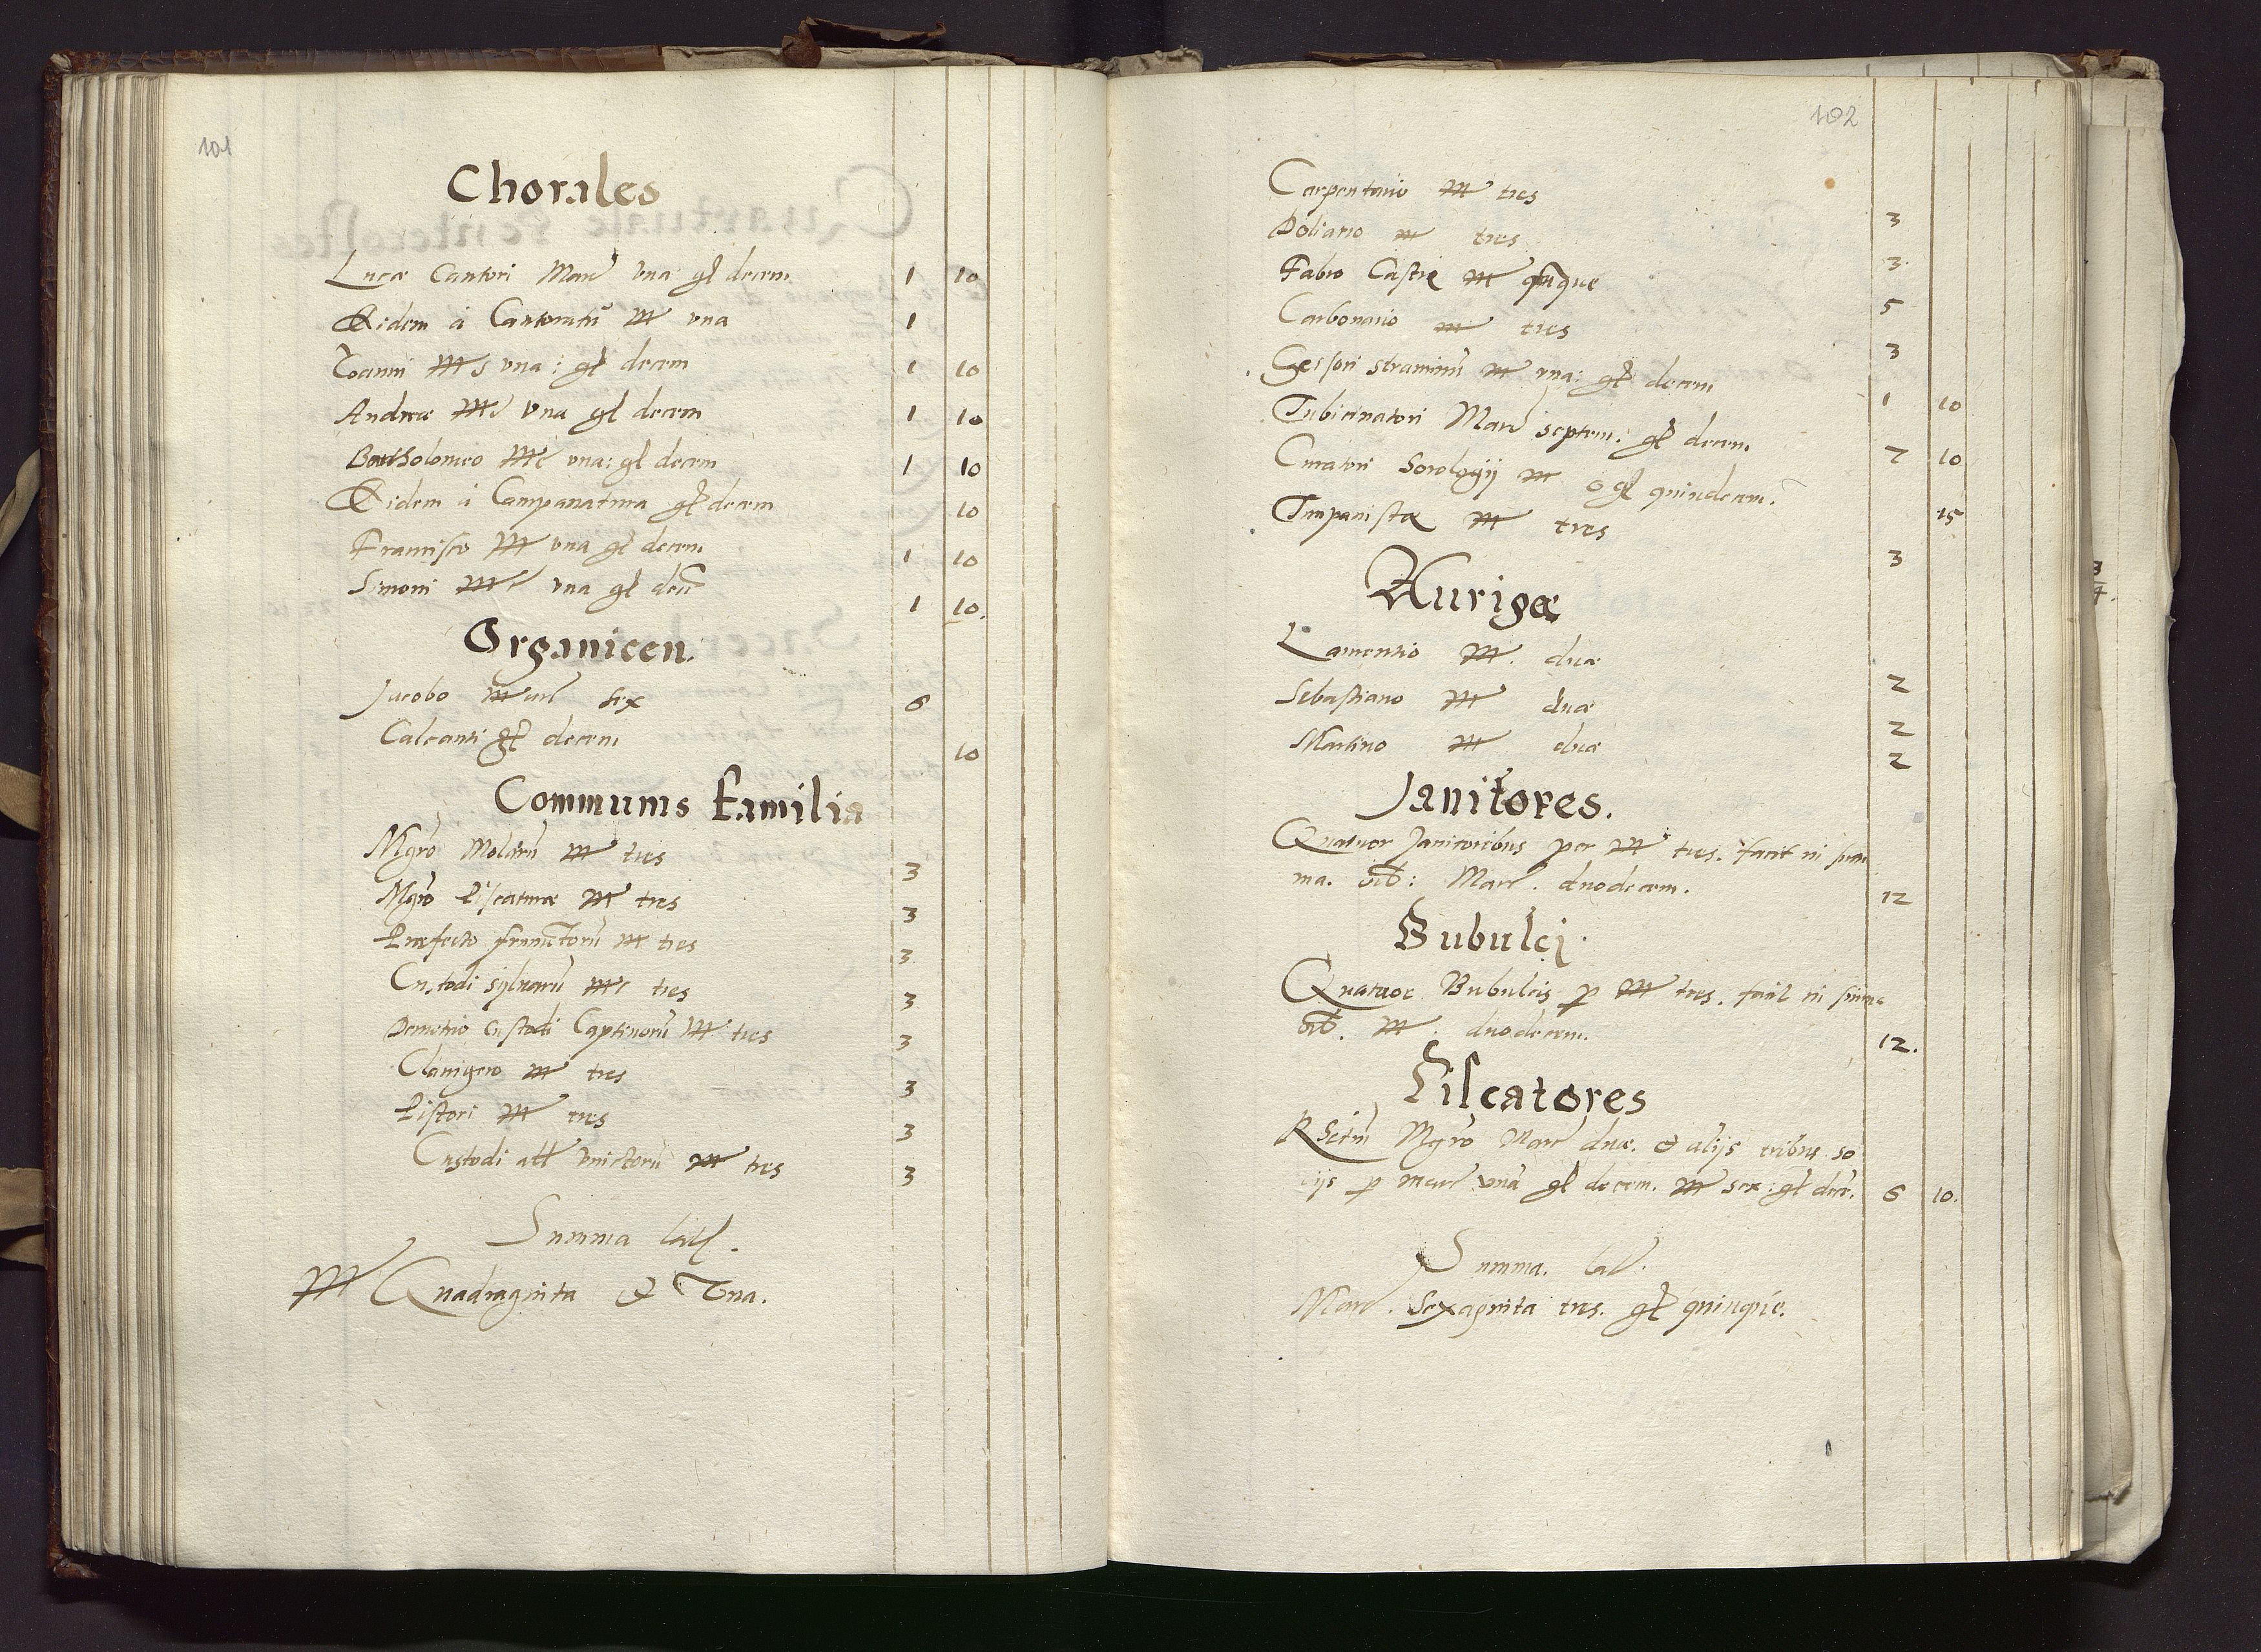 101
Chorales
Lucæ Cantori Marc una gł decem 1 10
Eidem à Cantoratu M una 1
Joanni M s una: gł decem 1 10
Andreæ Mc una gł decem 1 10
Bartholomeo Mc una: gł decem 1 10
Eidem à Campanatura gł decem 10
Francisco M una gł decem 1 10
Simoni Mc una gł decē 1 10.
Organicen.
Jacobo Marc sex 6
Calcanti gł decem 10
Communis Familia
Mgrō Molarū M tres 3
Mgrō Piscaturæ M tres 3
Præfecto frumētorū M tres 3
Custodi sylvarū Mc tres 3
Demetrio Custodi Captivorū M tres 3
Clavigero M tres 3
Pistori M tres 3
Custodi all vinctorū M tres 3
Summa lať.
M Quadraginta & Una.
102
Carpentario M tres 3
Doliario M tres 3
Fabro Castri M quinque 5
Carbonario M tres 3
Scissori straminū M una: gł decem 1 10
Tubicinatori Marc septem: gł decem 7 10
Curatori horologij M 0 gł quindecim. 15
Timpanistæ M tres 3
Aurigæ
Laurentio M. duæ 2
Sebastiano M duæ 2
Martino M duæ 2
Janitores.
Quatuor Janitoribus per M tres. facit in sum
ma. Marc. duodecem. 12
Bubulci.
Quatuor Bubulcis p M tres. facit in summa
M. duodecem. 12.
Piscatores
Mgrō Marc duæ. & alijs tribus so
ijs p marc unā gł decem. M sex: gł decē. 6 10.
Summa. lať.
Marc. Sexaginta tres. gł quinque.